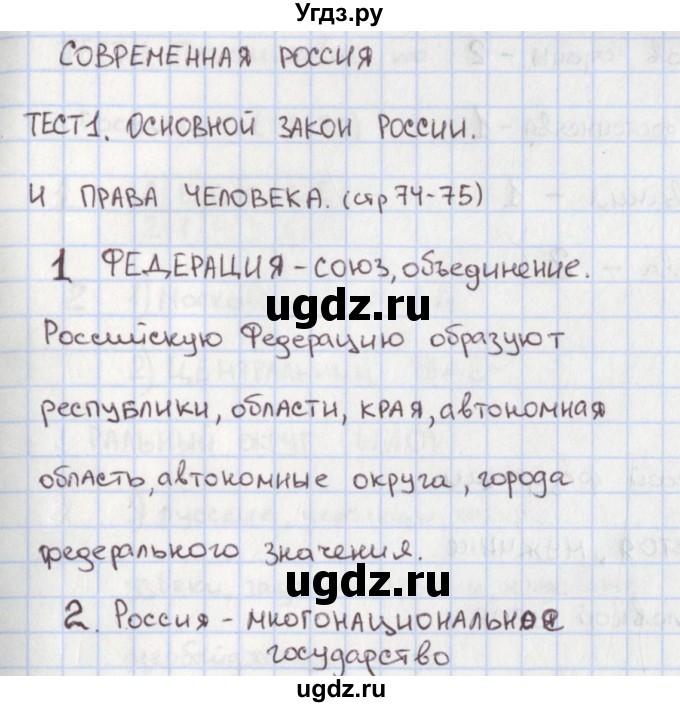 Угдз.ру
СОВРЕМЕННАЯ РОССИЯ
ТЕСТ 1. ОСНОВНОЙ ЗАКОН РОССИИ.
И ПРАВА ЧЕЛОВЕКА. (стр 74-75)
1 ФЕДЕРАЦИЯ - СОЮЗ, объединение.
ugdz.ru
Российскую Федерацию образуют
республики, области, края, автономная
область, автономные округа, города
федерального значения.
ugdz.ru
2. Россия - многонациональное
государство
ugdz.ru